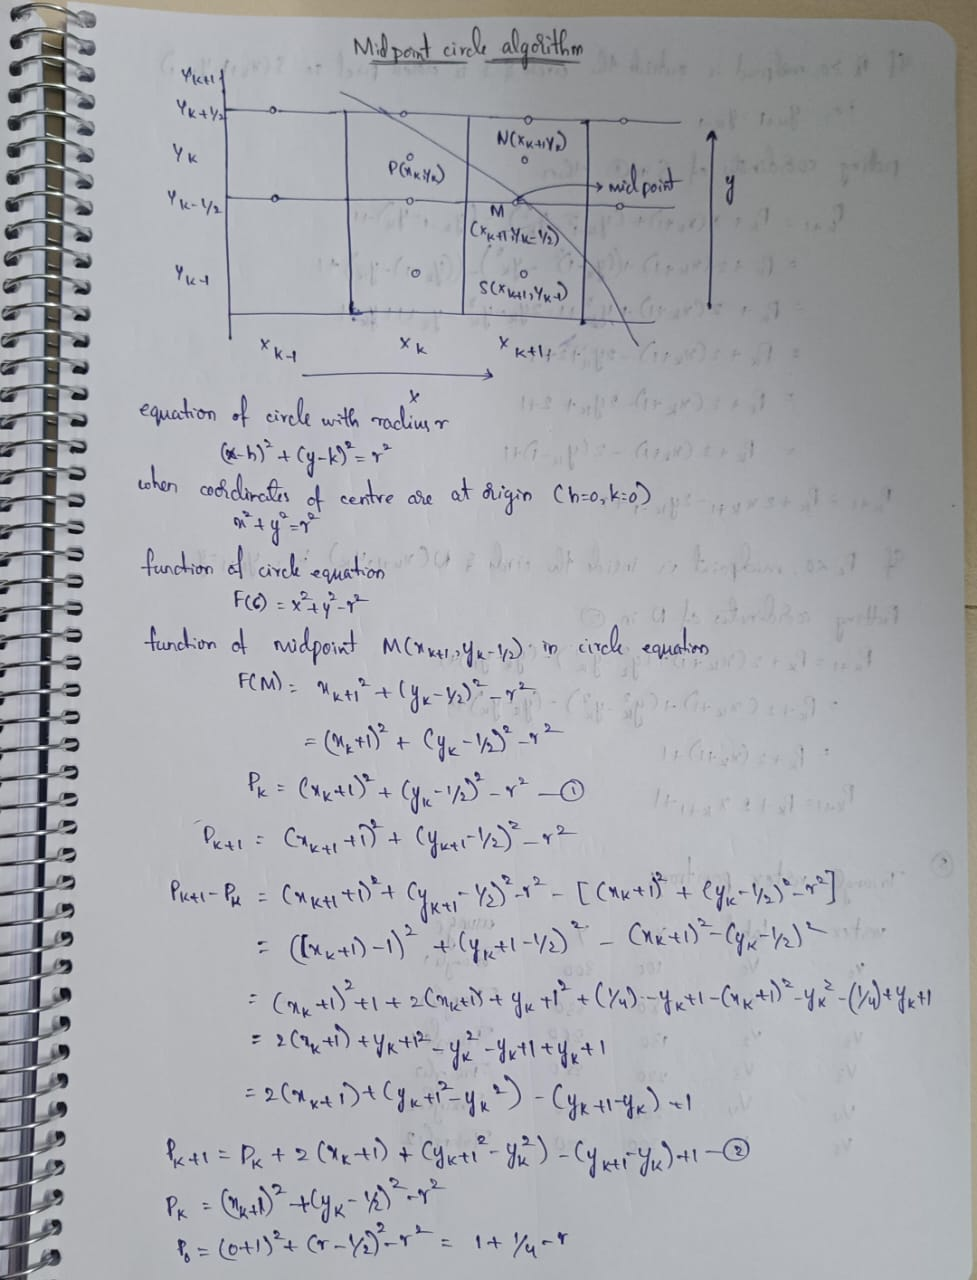 Midpoint circle algorithm
Yk+1
Yk+1/2
N(xk+1, Yk)
Yk
P(xk, yk)
midpoint
y
Yk-1/2
M
(xk+1, yk-1/2)
Yk-1
S(xk+1, yk-1)
xk-1 xk xk+1
x
equation of circle with radius r
(x-h)² + (y-k)² = r²
when coordinates of centre are at origin (h=0, k=0)
x² + y² = r²
function of circle equation
F(c) = x² + y² - r²
function of midpoint M(xk+1, yk-1/2) in circle equation
F(M) = xk+1² + (yk - 1/2)² - r²
= (xk+1)² + (yk - 1/2)² - r²
Pk = (xk+1)² + (yk - 1/2)² - r² — ①
Pk+1 = (xk+1 + 1)² + (yk+1 - 1/2)² - r²
Pk+1 - Pk = (xk+1 + 1)² + (yk+1 - 1/2)² - r² - [(xk+1)² + (yk - 1/2)² - r²]
= ((xk+1) - 1)² + (yk+1 - 1/2)² - (xk+1)² - (yk - 1/2)²
= (xk+1)² + 1 + 2(xk+1) + yk+1² + (1/4) - yk+1 - (xk+1)² - yk² - (1/4) + yk+1
= 2(xk+1) + yk+1² - yk² - yk+1 + yk + 1
= 2(xk+1) + (yk+1² - yk²) - (yk+1 - yk) + 1
Pk+1 = Pk + 2(xk+1) + (yk+1² - yk²) - (yk+1 - yk) + 1 — ②
Pk = (xk+1)² + (yk - 1/2)² - r²
P0 = (0+1)² + (r - 1/2)² - r² = 1 + 1/4 - r